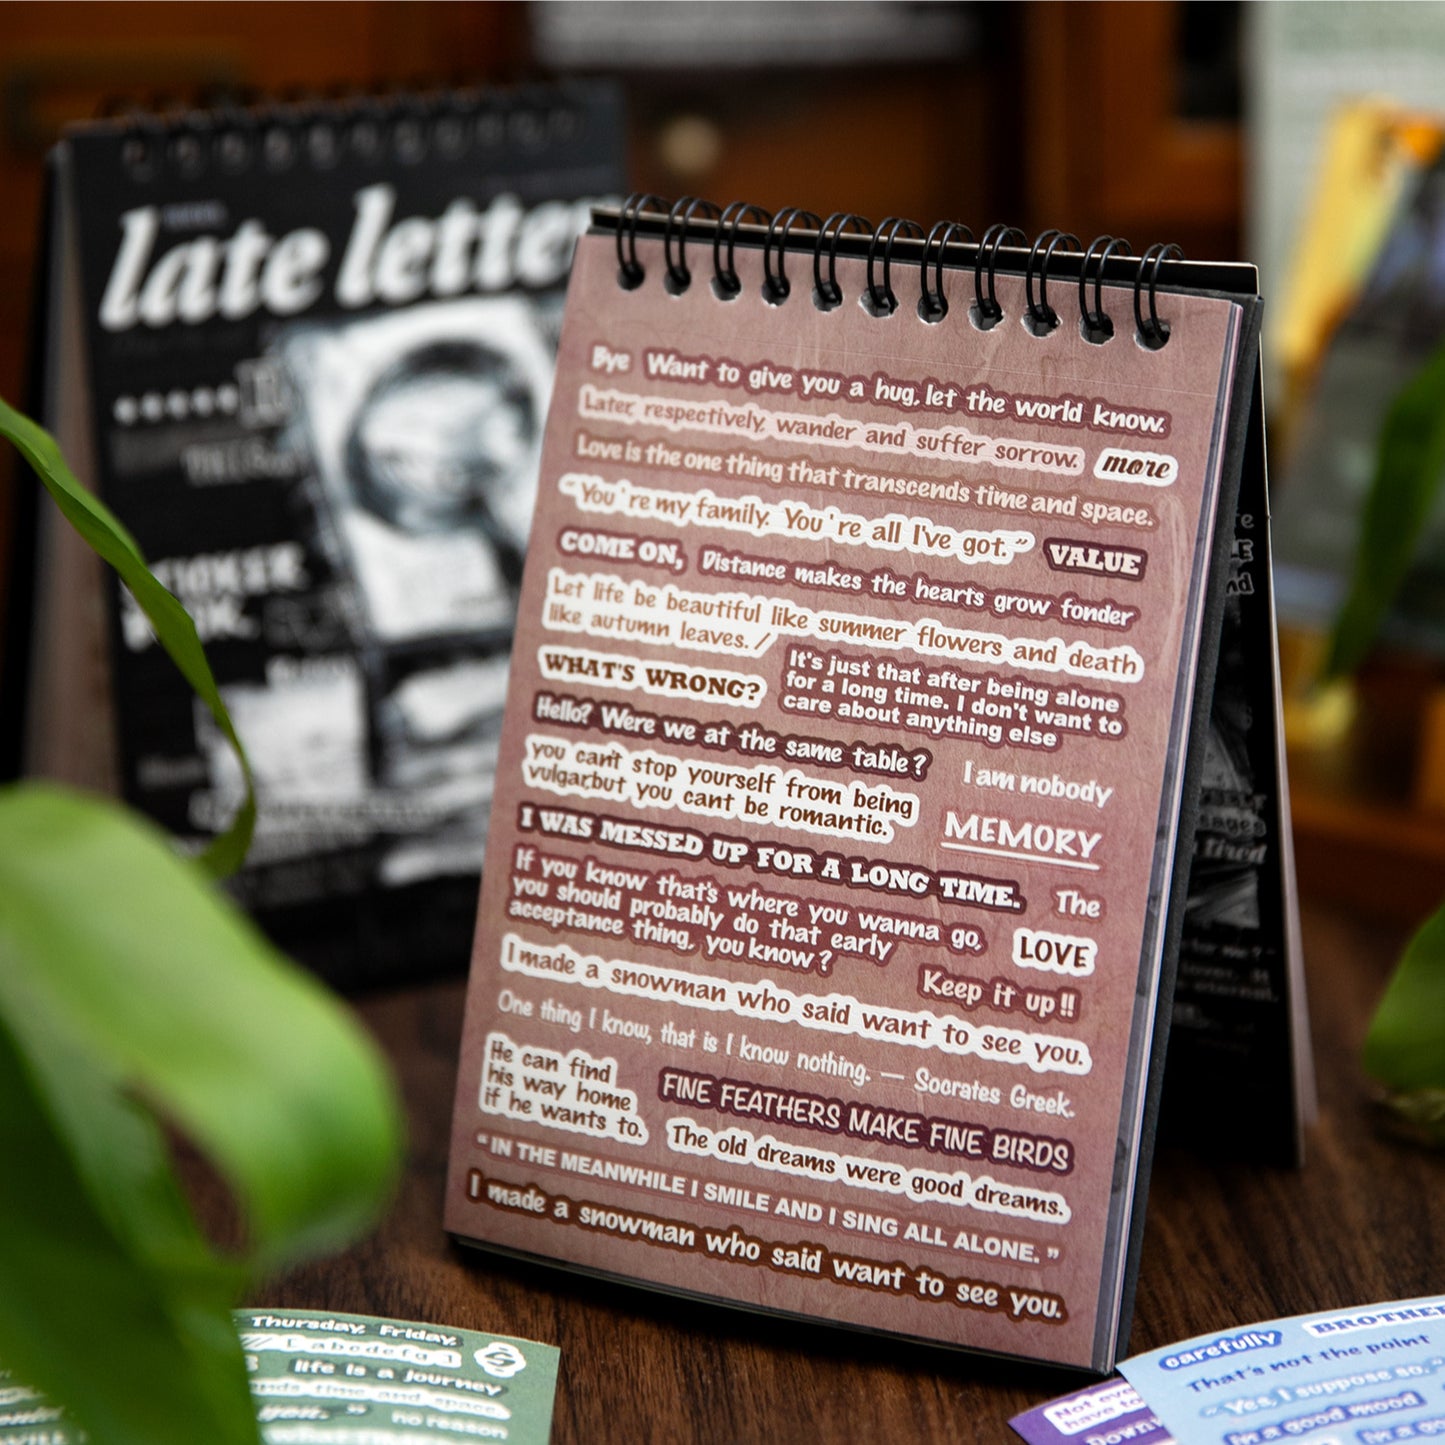 late letter
Bye Want to give you a hug, let the world know.
Later, respectively, wander and suffer sorrow. more
Love is the one thing that transcends time and space.
“You're my family. You're all I've got.”
VALUE
COME ON, Distance makes the hearts grow fonder
Let life be beautiful like summer flowers and death
like autumn leaves. /
WHAT'S WRONG?
It's just that after being alone
for a long time. I don't want to
care about anything else
Hello? Were we at the same table?
I am nobody
you can't stop yourself from being
vulgar,but you cant be romantic.
MEMORY
I WAS MESSED UP FOR A LONG TIME.
The
If you know that's where you wanna go,
you should probably do that early
acceptance thing, you know?
LOVE
Keep it up!!
I made a snowman who said want to see you.
One thing I know, that is I know nothing. — Socrates Greek.
He can find
his way home
if he wants to.
FINE FEATHERS MAKE FINE BIRDS
The old dreams were good dreams.
“IN THE MEANWHILE I SMILE AND I SING ALL ALONE.”
I made a snowman who said want to see you.
Thursday, Friday,
a b c d e f g
life is a journey
time and space
no reason
carefully BROTHE
That's not the point
~ Yes, I suppose so.~
in a good mood
Not eve
have to
Down
in a go